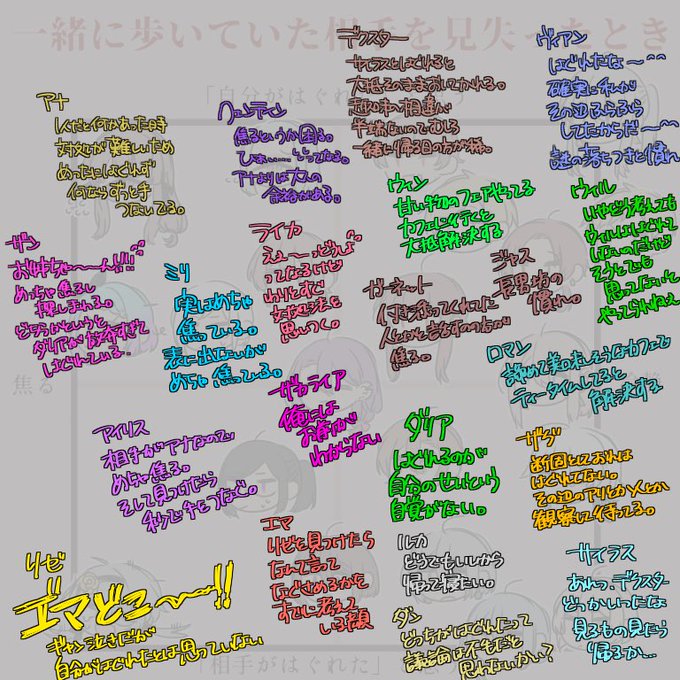 一緒に歩いていた相手を見失ったとき
「自分がはぐれた」
デクスター
サイラスとはぐれると
大抵そのままおいてかれる。
一緒に帰る日の方が稀。
ヴィアン
はぐれたな〜^^
確実に私が
その辺ふらふら
してたからだ〜^^
謎の落ちつきと慣れ
アナ
1人だと何かあった時
対処が難しいため
めったにはぐれず
何ならずっと手
つないでる。
クェンティン
焦るというか困る。
ひぇぃ……ってなる。
アナよりは大人の
余裕がある。
ウィン
甘い物のフェアやってる
カフェに行くと
大抵解決する
ウィル
いやどう考えても
ウィルははぐれて
はないのだけど
そうとでも
思ってないと
やってられねぇ
ザン
お姉ちゃ〜〜ん!!!
めっちゃ焦るし
探しまわる。
どちらかというと
ダリアが放任すぎて
はぐれている。
ミリ
実はめちゃ
焦っている。
表に出ないが
めちゃ焦ってる。
ライカ
えぇ〜っどうしよ
ってなるけど
わりとすぐ
対処法を
思いつく。
ガーネット
付き添ってくれてた
焦る。
ジャス
長男坊の
慣れ。
ロマン
諦めて美味しそうなカフェで
ティータイムしてると
解決する
焦る
アイリス
相手がアナなので
めちゃ焦る。
そして見つけたら
秒で手をつなぐ。
ザカライア
俺には
お前が
わからない
ダリア
はぐれるのが
自分のせいという
自覚がない。
ザジ
断固としておれは
はぐれてない。
その辺のアリとか人とか
観察して待ってる。
リゼ
エマどこ〜〜!!
ギャン泣きだが
自分がはぐれたとは思っていない
エマ
リゼを見つけたら
なんて言って
なぐさめるかを
すでに考えて
いる顔
ルカ
どうでもいいから
帰って寝たい。
ダン
どっちがはぐれたって
議論は不毛だと
思わないかい?
サイラス
あれっ、デクスター
どっかいったな
見るもの見たら
帰るか…
「相手がはぐれた」